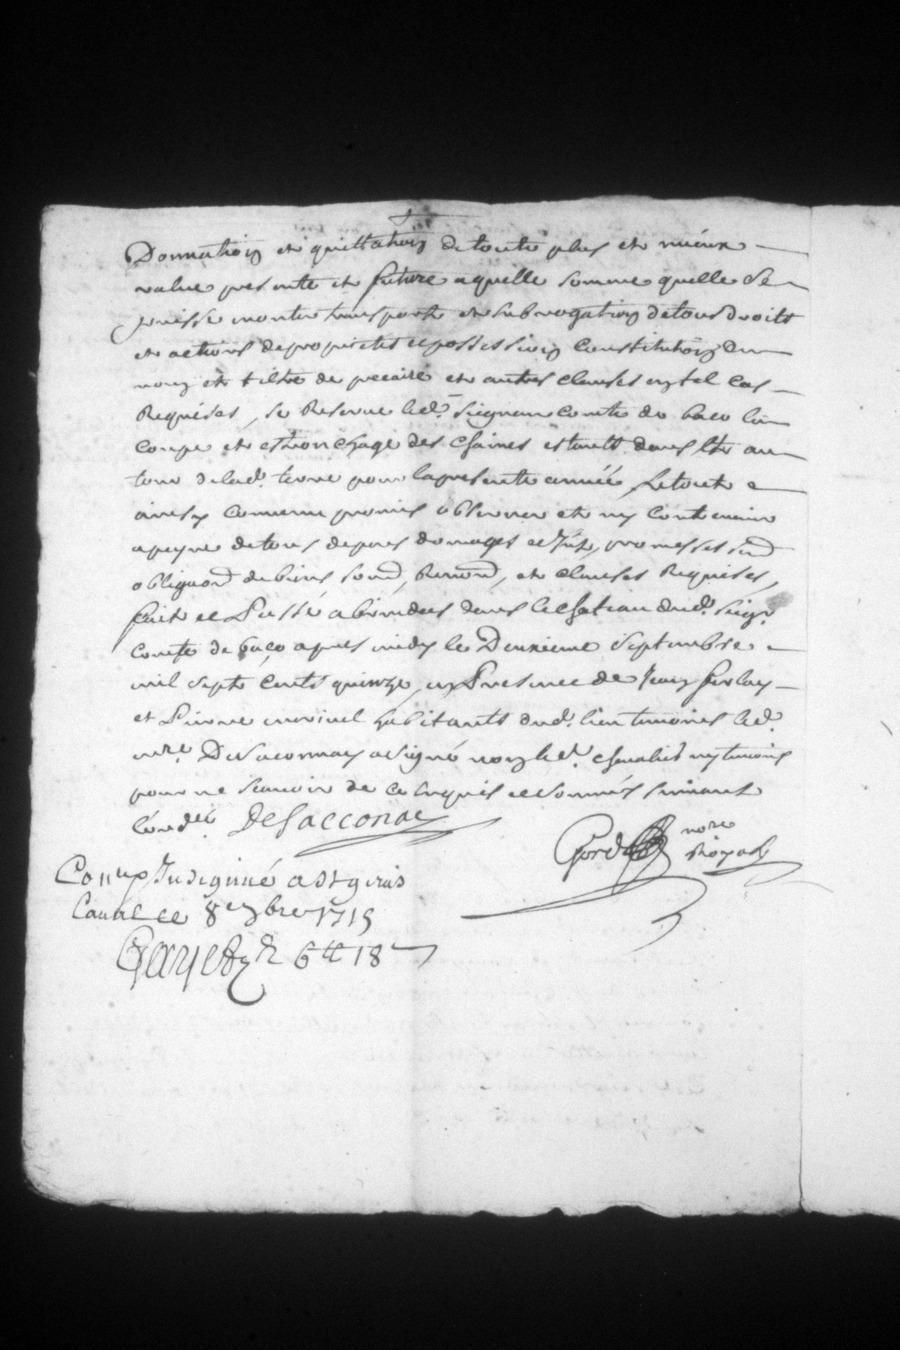 Donnation et quittation de toute plus et mieux
value presente et future a quelle somme quelle se
puisse monter transport et subrogation de tous droits
et actions de proprietes et possession constitution du
nom et tiltre de precaire et autres clauses en tel cas
Requises, se Reserve led. seigneur comte de baco la
coupe et estronchage des chaines estants dans et au
tour de lad. terre pour la presente année, le tout
ainsy comme promis observer et ny contrevenir
a peyne de tous depens domages et promesses
obligaon de biens soud, Renond, et clauses Requises,
fait et Passé a dans le chateau dud. seigr.
comte de baco apres midy le Deuxieme septembre
mil sept cents quinze, en Presence de Jean
et Pierre habitants dud. lieu temoins led.
mre. De Sacconnay a signé non led. chevalier ny temoins
pour ne scavoir de ce enquis et sommés suivant
l'ord.
De Sacconay
nore
Royal
Conlle Insinué a St genis
Laval le 8e 7bre 1715
6tt 18